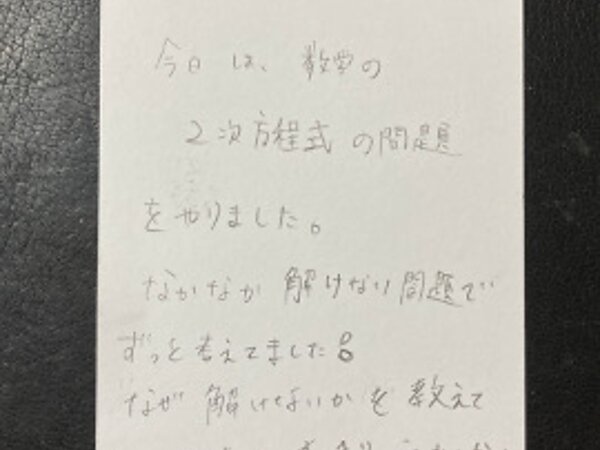 今日は、数学の
2次方程式の問題
をやりました。
なかなか解けない問題で
ずっと考えてました。
なぜ解けないかを教えて